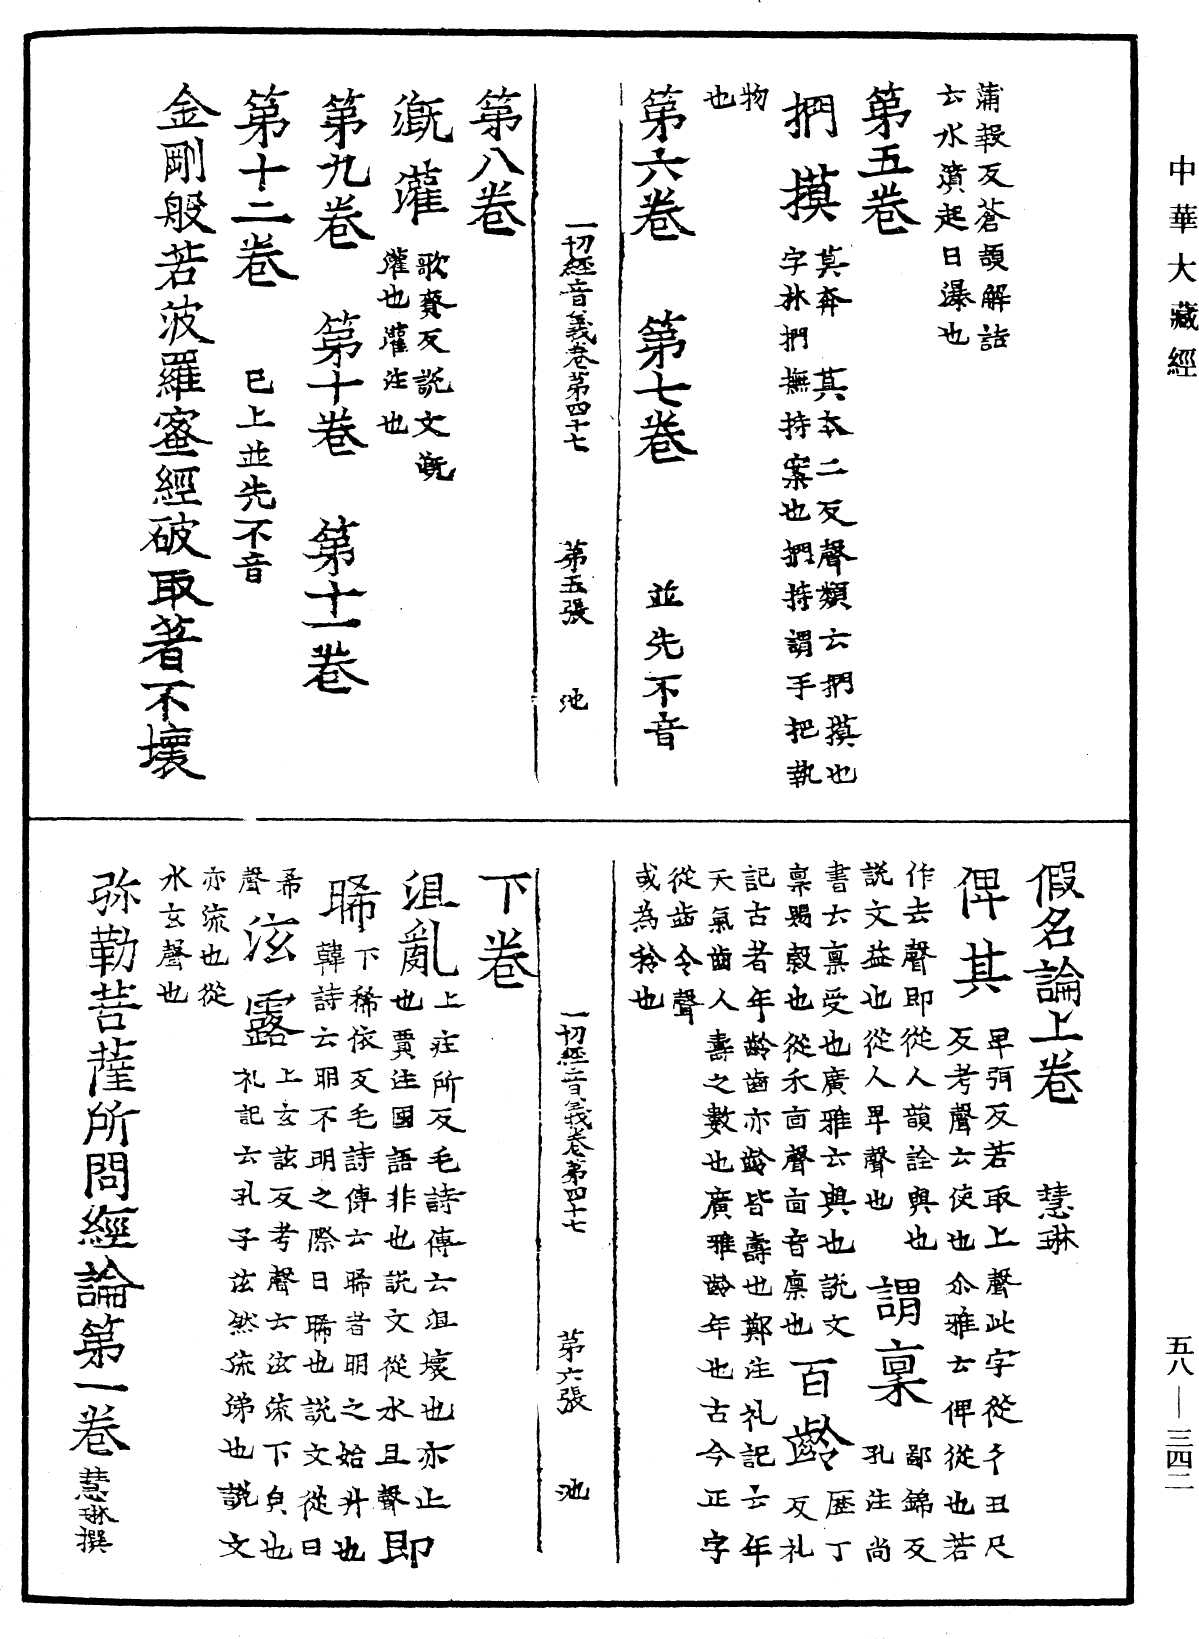 中華大藏經
蒲報反蒼頡解詁
云水濆起曰瀑也
第五卷
捫摸 莫奔 其本二反聲類云捫摸也
字林捫撫持案也捫持謂手把執
物
也
第六卷 第七卷 並先不音
一切經音義卷第四十七 第五張 池
第八卷
溉灌 歌賚反説文溉
灌也灌注也
第九卷 第十卷 第十一卷
第十二卷 已上並先不音
金剛般若波羅蜜經破取著不壞
假名論上卷 慧琳
俾其 卑弭反若取上聲此字從彳丑尺
反考聲云使也尒雅云俾從也若
作去聲即從人韻詮與也
説文益也從人卑聲也 謂稟 鄙錦反
孔注尚
書云稟受也廣雅云與也説文
稟賜穀也從禾㐭聲㐭音稟也 百齡 歴丁
反礼
記古者年齡齒亦齡皆壽也鄭注礼記云年
天氣齒人壽之數也廣雅齡年也古今正字
從齒令聲
或為秢也
一切經音義卷第四十七 第六張 池
下卷
沮亂 上疰所反毛詩傳云沮壞也亦止
也賈注國語非也説文從水且聲 即
晞 下稀依反毛詩傳云晞者明之始升也
韓詩云明不明之際曰晞也説文從日
希
聲 泫露 上玄詃反考聲云泫流下皃也
礼記云孔子泫然流涕也説文
亦流也從
水玄聲也
弥勒菩薩所問經論第一卷 慧琳撰
五八—三四二